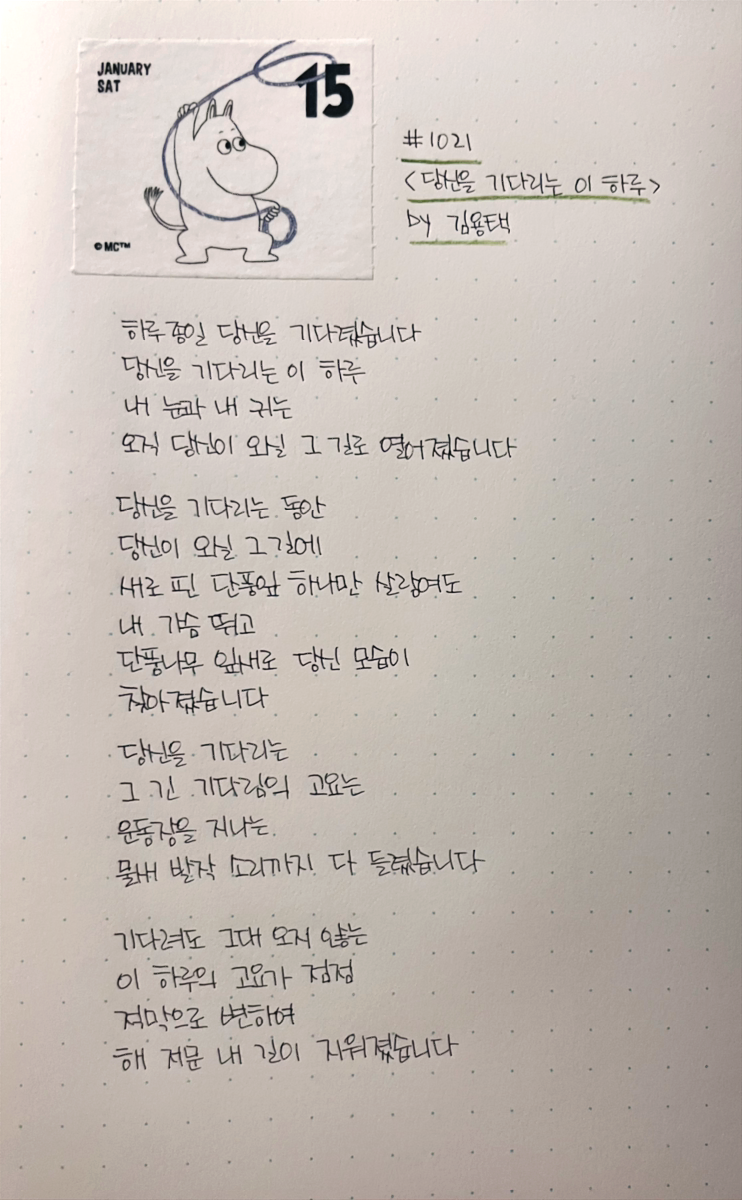 JANUARY
SAT
15
©MC™
#1021
<당신을 기다리는 이 하루>
by 김용택
하루 종일 당신을 기다렸습니다
당신을 기다리는 이 하루
내 눈과 내 귀는
오직 당신이 와실 그 길로 열어졌습니다
당신을 기다리는 동안
당신이 와실 그 길에
새로 핀 단풍잎 하나만 살랑여도
내 가슴 뛰고
단풍나무 잎새로 당신 모습이
찾아졌습니다
당신을 기다리는
그 긴 기다림의 고요는
운동장을 지나는
물새 발작 소리까지 다 들렸습니다
기다려도 그대 오지 않는
이 하루의 고요가 점점
적막으로 변하여
해 저문 내 길이 지워졌습니다